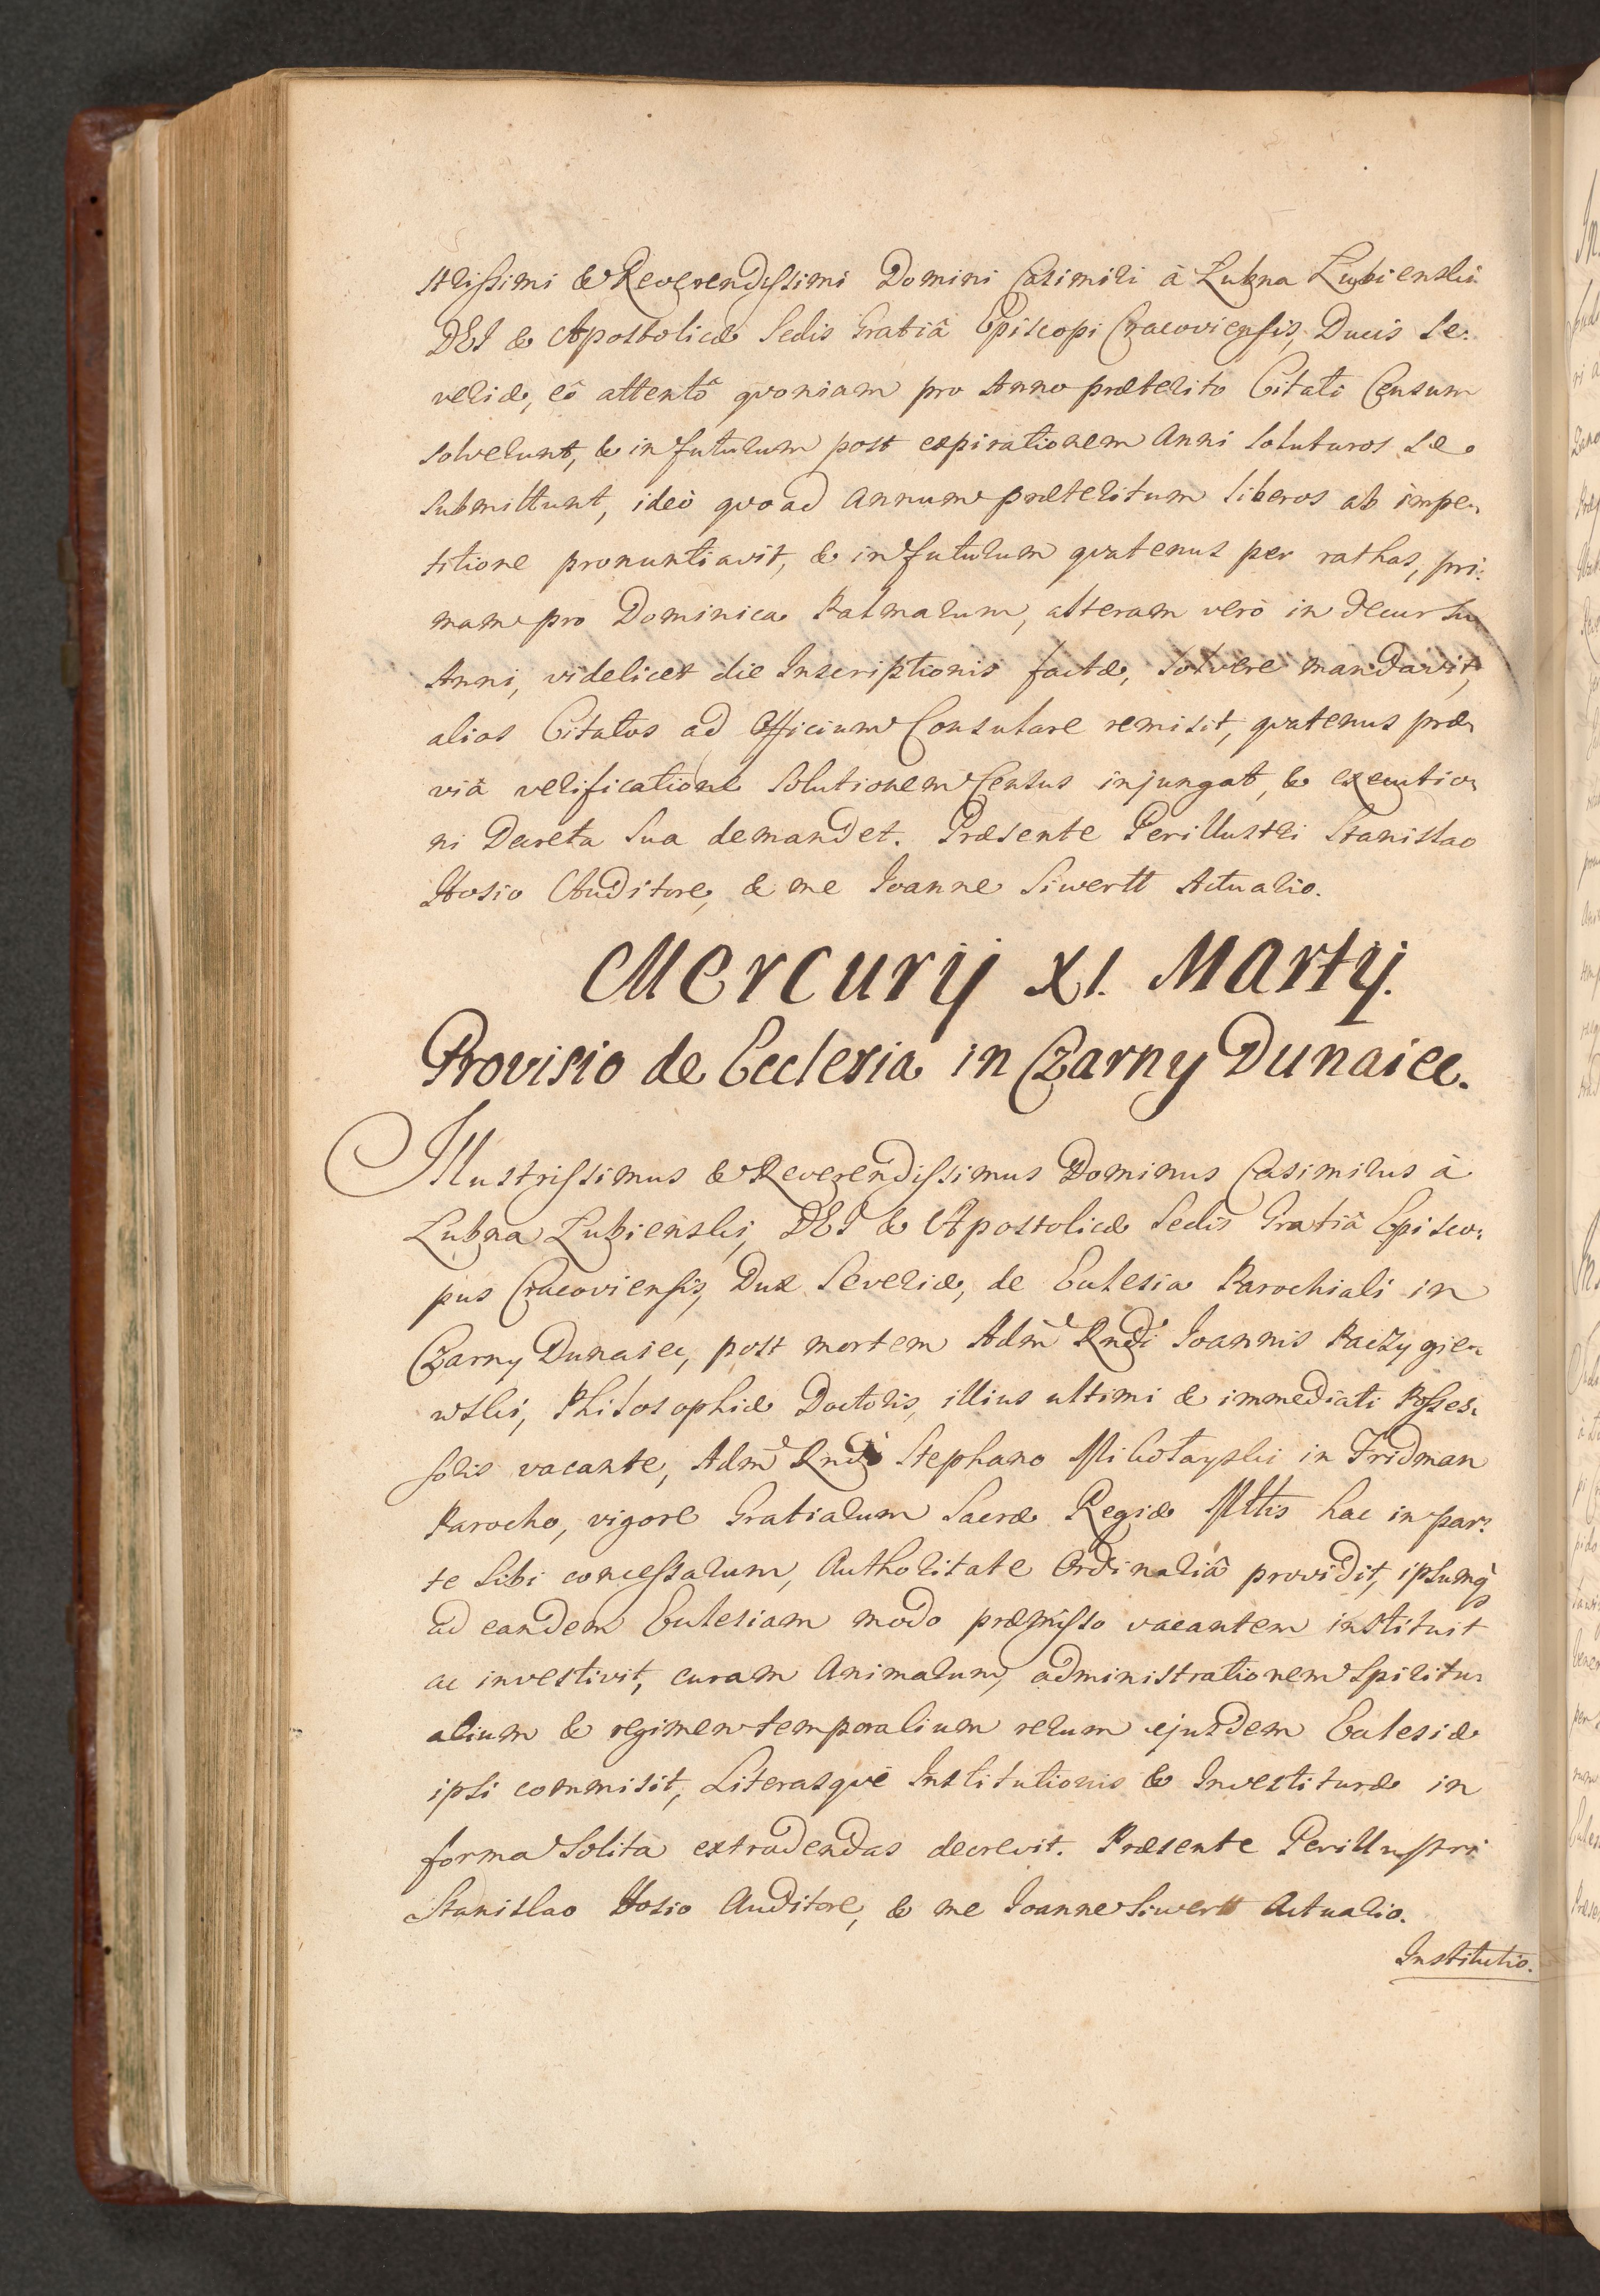 strissimi & Reverendissimi Domini Casimiri à Lubna Lubienski
DEI & Apostolicæ Sedis Gratiâ Episcopi Cracoviensis, Ducis Se:
veriæ, eô attentô quoniam pro Anno præterito Citati Censum
solverunt, & in futurum post expirationem Anni soluturos se
submittunt, ideò quoad annum præteritum liberos ab impe:
titione pronuntiavit, & in futurum quatenus per rathas, pri:
mam pro Dominica Palmarum, alteram verò in decursu
Anni, videlicet die Inscriptionis factæ, solvere mandavit,
alios Citatos ad Officium Consulare remisit, quatenus præ:
viâ verificatione solutionem Census injungat, & executio:
ni Decreta sua demandet. Præsente Perillustri Stanislao
Hosio Auditore, & me Ioanne Siwertt Actuario.
Mercurij XI. Martij.
Provisio de Ecclesia in Czarny Dunaiec.
Illustrissimus & Reverendissimus Dominus Casimirus à
Lubna Lubienski, DEI & Apostolicæ Sedis Gratiâ Episco:
pus Cracoviensis, Dux Severiæ, de Ecclesia Parochiali in
Czarny Dunaiec, post mortem Adm Rndi Ioannis Paczygie:
wski, Philosophiæ Doctoris, illius ultimi & immediati Posses:
soris vacante, Adm Rndo Stephano in Fridman
Parocho, vigore Gratiarum Sacræ Regiæ Mttis hac in par:
te sibi concessarum, Authoritate Ordinariâ providit, ipsumq
ad eandem Ecclesiam modo præmisso vacantem instituit
ac investivit, curam Animarum, administrationem spiritu:
alium & regimen temporalium rerum ejusdem Ecclesiæ
ipsi commisit, Literasque Institutionis & Investituræ in
forma solita extradendas decrevit. Præsente Perillustri
Stanislao Hosio Auditore, & me Ioanne Siwertt Actuario.
Institutio.